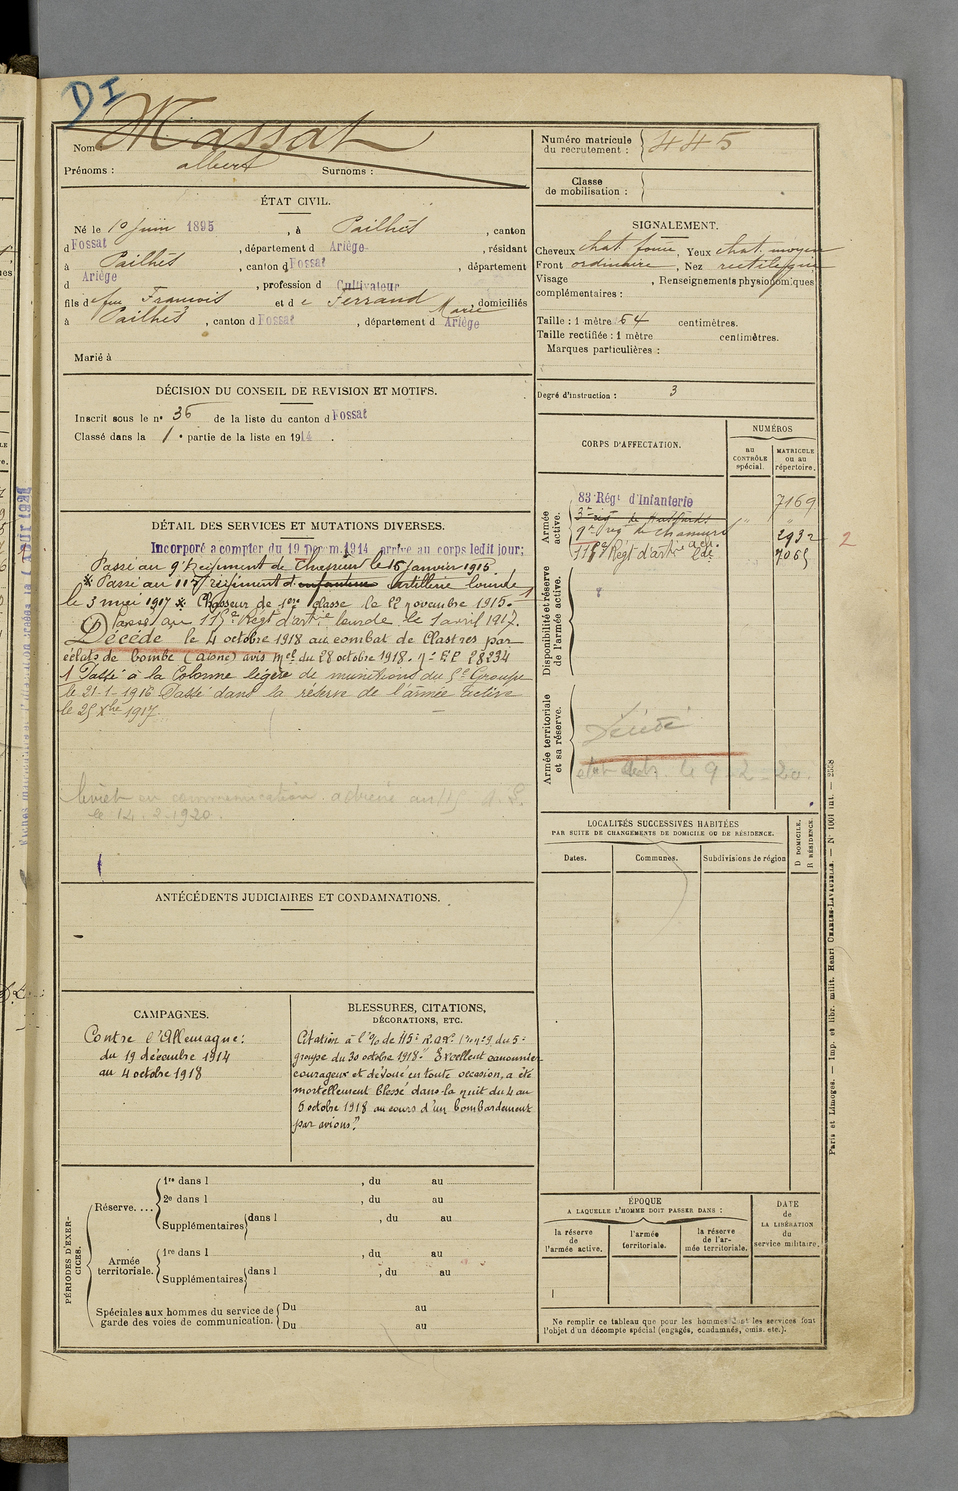 DI
Nom Massat
Prénoms : albert Surnoms :
Numéro matricule du recrutement : 445
Classe de mobilisation :
ÉTAT CIVIL.
Né le 10 Juin 1895, à Pailhès, canton
d Fossat, département d Ariège, résidant
à Pailhès, canton d Fossat, département
d Ariège, profession d Cultivateur
fils de feu François et de Ferrand Marie, domiciliés
à Pailhès, canton d Fossat, département d Ariège
Marié à
SIGNALEMENT.
Cheveux chat. foncé, Yeux chat. moyen
Front ordinaire, Nez rectiligne
Visage , Renseignements physionomiques
complémentaires :
Taille : 1 mètre 64 centimètres.
Taille rectifiée : 1 mètre centimètres.
Marques particulières :
Degré d'instruction : 3
DÉCISION DU CONSEIL DE REVISION ET MOTIFS.
Inscrit sous le nº 36 de la liste du canton d Fossat
Classé dans la 1e partie de la liste en 1914.
DÉTAIL DES SERVICES ET MUTATIONS DIVERSES.
Incorporé a compter du 19 Décem. 1914 arrivé au corps ledit jour;
Passé au 9e Régiment de Chasseurs le 15 janvier 1915
* Passé au 117e régiment d'infanterie Artillerie lourde
le 3 mai 1917 * Chasseur de 1ère classe le 22 novembre 1915. 1
Passé au 115e Régt d'artie lourde le 1 avril 1917.
Décédé le 4 octobre 1918 au combat de Clastres par
éclats de bombe (Aisne) avis Mel du 28 octobre 1918. nº EP 28234
1 Passé à la Colonne légère de munitions du 5e Groupe
le 21-1-1916 Passé dans la réserve de l'armée active
le 25 Xbre 1917
livret en communication adressé au 115 A. L.
le 14.2.1920.
CORPS D'AFFECTATION.
NUMÉROS
au CONTRÔLE spécial.
MATRICULE ou au répertoire.
Armée active.
83 Régt d'Infanterie 7169
9e Rég de Chasseurs 2932 2
115e Régt d'artie lde 7065
Disponibilité et réserve de l'armée active.
Armée territoriale et sa réserve.
Décédé
le 9-2-20.
LOCALITÉS SUCCESSIVES HABITÉES
PAR SUITE DE CHANGEMENTS DE DOMICILE OU DE RÉSIDENCE.
Dates.
Communes.
Subdivisions de région
D DOMICILE.
R RÉSIDENCE
ANTÉCÉDENTS JUDICIAIRES ET CONDAMNATIONS.
CAMPAGNES.
Contre l'Allemagne:
du 19 décembre 1914
au 4 octobre 1918
BLESSURES, CITATIONS,
DÉCORATIONS, ETC.
Citation à l'% de 115e R.A.L. nº 29 du 5e
groupe du 30 octobre 1918. "Excellent canonnier
courageux et dévoué en toute occasion, a été
mortellement blessé dans la nuit du 4 au
5 octobre 1918 au cours d'un bombardement
par avions."
PÉRIODES D'EXERCICES.
Réserve....
1re dans l , du au
2e dans l , du au
Supplémentaires dans l , du au
Armée territoriale.
1re dans l , du au
Supplémentaires dans l , du au
Spéciales aux hommes du service de garde des voies de communication.
Du au
Du au
ÉPOQUE
A LAQUELLE L'HOMME DOIT PASSER DANS :
la réserve de l'armée active.
l'armée territoriale.
la réserve de l'armée territoriale.
DATE de LA LIBÉRATION du service militaire.
Ne remplir ce tableau que pour les hommes dont les services font
l'objet d'un décompte spécial (engagés, condamnés, omis, etc.).
Paris et Limoges. — Imp. et libr. milit. Henri CHARLES-LAVAUZELLE. — Nº 1001 int. — 2558